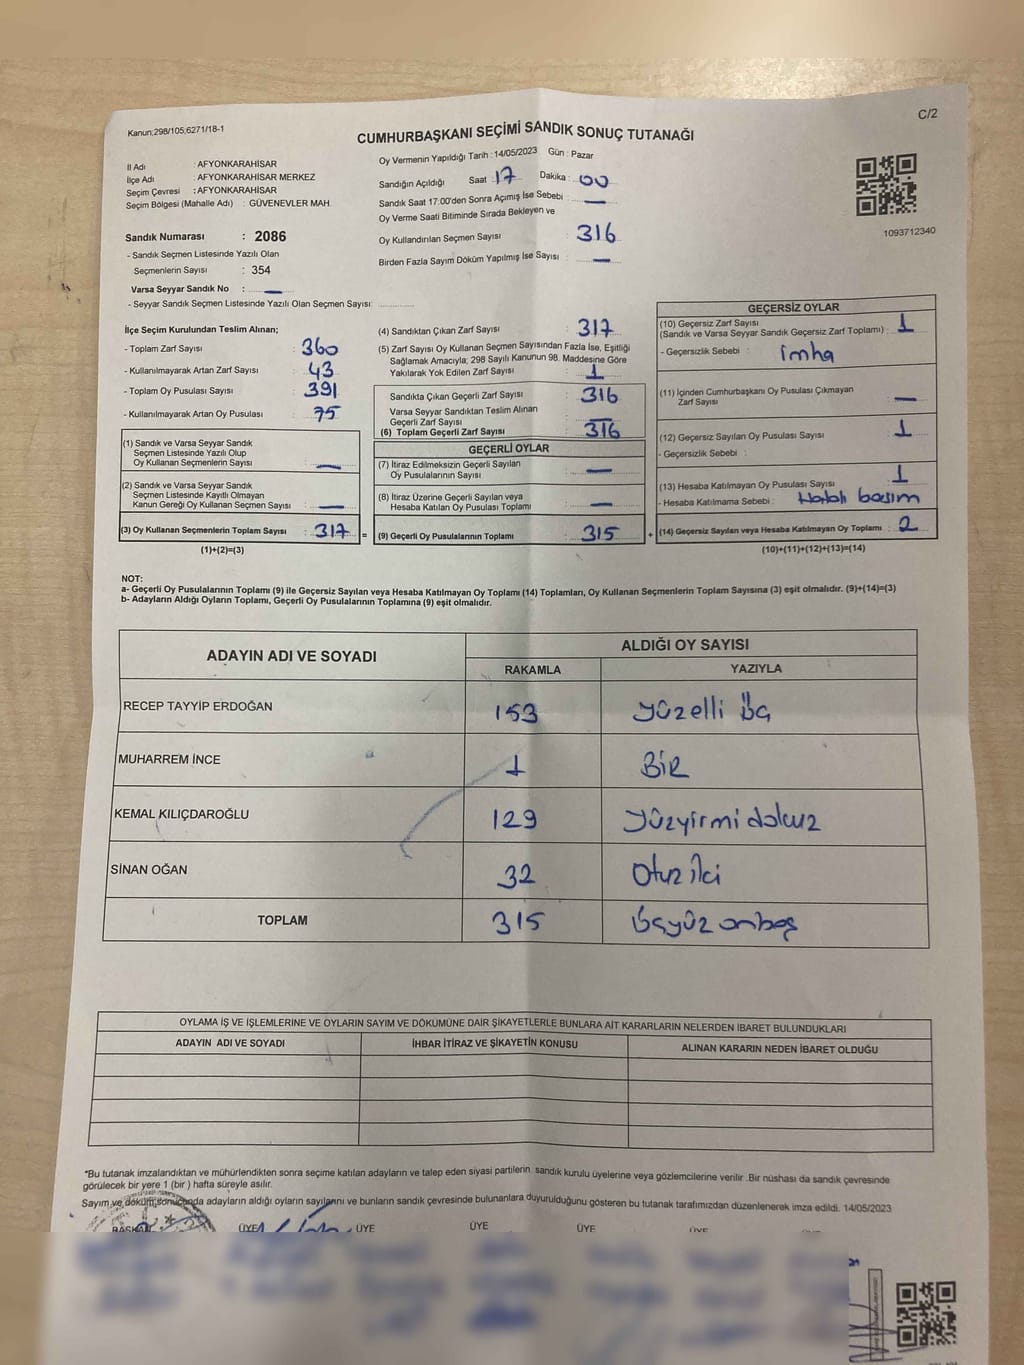 C/2
Kanun;298/105;6271/18-1
CUMHURBAŞKANI SEÇİMİ SANDIK SONUÇ TUTANAĞI
İl Adı : AFYONKARAHİSAR
İlçe Adı : AFYONKARAHİSAR MERKEZ
Seçim Çevresi : AFYONKARAHİSAR
Seçim Bölgesi (Mahalle Adı) : GÜVENEVLER MAH.
Sandık Numarası : 2086
- Sandık Seçmen Listesinde Yazılı Olan
Seçmenlerin Sayısı : 354
Varsa Seyyar Sandık No : —
- Seyyar Sandık Seçmen Listesinde Yazılı Olan Seçmen Sayısı:
Oy Vermenin Yapıldığı Tarih : 14/05/2023 Gün : Pazar
Sandığın Açıldığı Saat : 17 Dakika : 00
Sandık Saat 17:00'den Sonra Açımış İse Sebebi : —
Oy Verme Saati Bitiminde Sırada Bekleyen ve
Oy Kullandırılan Seçmen Sayısı : 316
Birden Fazla Sayım Döküm Yapılmış İse Sayısı : —
1093712340
İlçe Seçim Kurulundan Teslim Alınan;
- Toplam Zarf Sayısı : 360
- Kullanılmayarak Artan Zarf Sayısı : 43
- Toplam Oy Pusulası Sayısı : 391
- Kullanılmayarak Artan Oy Pusulası : 75
(1) Sandık ve Varsa Seyyar Sandık
Seçmen Listesinde Yazılı Olup
Oy Kullanan Seçmenlerin Sayısı : —
(2) Sandık ve Varsa Seyyar Sandık
Seçmen Listesinde Kayıtlı Olmayan
Kanun Gereği Oy Kullanan Seçmen Sayısı : —
(3) Oy Kullanan Seçmenlerin Toplam Sayısı : 317 =
(1)+(2)=(3)
(4) Sandıktan Çıkan Zarf Sayısı : 317
(5) Zarf Sayısı Oy Kullanan Seçmen Sayısından Fazla İse, Eşitliği
Sağlamak Amacıyla; 298 Sayılı Kanunun 98. Maddesine Göre
Yakılarak Yok Edilen Zarf Sayısı : 1
Sandıkta Çıkan Geçerli Zarf Sayısı : 316
Varsa Seyyar Sandıktan Teslim Alınan
Geçerli Zarf Sayısı : —
(6) Toplam Geçerli Zarf Sayısı : 316
GEÇERLİ OYLAR
(7) İtiraz Edilmeksizin Geçerli Sayılan
Oy Pusulalarının Sayısı : —
(8) İtiraz Üzerine Geçerli Sayılan veya
Hesaba Katılan Oy Pusulası Toplamı : —
(9) Geçerli Oy Pusulalarının Toplamı : 315 +
GEÇERSİZ OYLAR
(10) Geçersiz Zarf Sayısı
(Sandık ve Varsa Seyyar Sandık Geçersiz Zarf Toplamı) : 1
- Geçersizlik Sebebi : imha
(11) İçinden Cumhurbaşkanı Oy Pusulası Çıkmayan
Zarf Sayısı : —
(12) Geçersiz Sayılan Oy Pusulası Sayısı : 1
- Geçersizlik Sebebi :
(13) Hesaba Katılmayan Oy Pusulası Sayısı : 1
- Hesaba Katılmama Sebebi : Hatalı basım
(14) Geçersiz Sayılan veya Hesaba Katılmayan Oy Toplamı : 2
(10)+(11)+(12)+(13)=(14)
NOT:
a- Geçerli Oy Pusulalarının Toplamı (9) ile Geçersiz Sayılan veya Hesaba Katılmayan Oy Toplamı (14) Toplamları, Oy Kullanan Seçmenlerin Toplam Sayısına (3) eşit olmalıdır. (9)+(14)=(3)
b- Adayların Aldığı Oyların Toplamı, Geçerli Oy Pusulalarının Toplamına (9) eşit olmalıdır.
ADAYIN ADI VE SOYADI ALDIĞI OY SAYISI
RAKAMLA YAZIYLA
RECEP TAYYİP ERDOĞAN 153 yüzelli üç
MUHARREM İNCE 1 BİR
KEMAL KILIÇDAROĞLU 129 yüzyirmi dokuz
SİNAN OĞAN 32 Otuz iki
TOPLAM 315 üçyüz onbeş
OYLAMA İŞ VE İŞLEMLERİNE VE OYLARIN SAYIM VE DÖKÜMÜNE DAİR ŞİKAYETLERLE BUNLARA AİT KARARLARIN NELERDEN İBARET BULUNDUKLARI
ADAYIN ADI VE SOYADI İHBAR İTİRAZ VE ŞİKAYETİN KONUSU ALINAN KARARIN NEDEN İBARET OLDUĞU
*Bu tutanak imzalandıktan ve mühürlendikten sonra seçime katılan adayların ve talep eden siyasi partilerin sandık kurulu üyelerine veya gözlemcilerine verilir .Bir nüshası da sandık çevresinde
görülecek bir yere 1 (bir ) hafta süreyle asılır.
Sayım ve döküm sonucunda adayların aldığı oyların sayılarını ve bunların sandık çevresinde bulunanlara duyurulduğunu gösteren bu tutanak tarafımızdan düzenlenerek imza edildi. 14/05/2023
BAŞKAN ÜYE ÜYE ÜYE ÜYE ÜYE